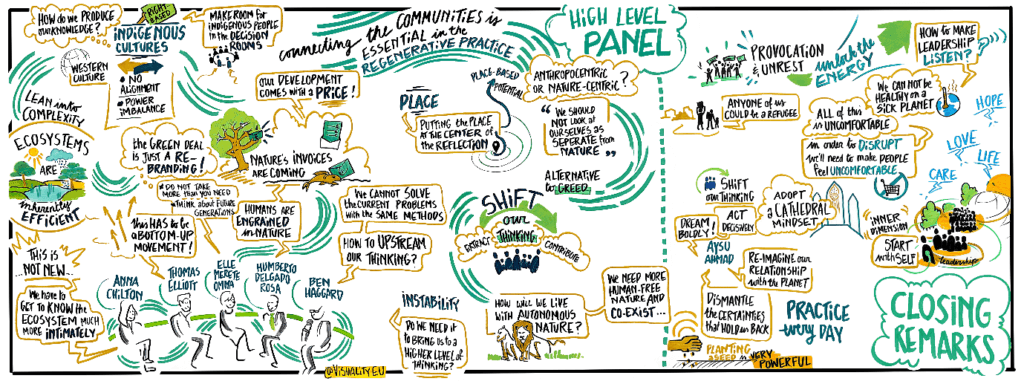 HOW DO WE PRODUCE
our KNOWLEDGE?
RIGHT
BASED
INDIGENOUS
CULTURES
WESTERN
CULTURE
• NO
ALIGNMENT
• POWER
IMBALANCE
MAKE ROOM for
INDIGENOUS PEOPLE
in the DECISION
ROOMS
LEAN into
COMPLEXITY
ECOSYSTEMS
ARE
inherently
EFFICIENT
the GREEN DEAL
is JUST A RE-
BRANDING!
our DEVELOPMENT
COMES WITH a PRICE!
NATURE'S INVOICES
ARE COMING
• DO NOT TAKE
MORE THAN YOU NEED
• Think about FUTURE
GENERATIONS
This HAS to be
a BOTTOM-UP
MOVEMENT!
HUMANS ARE
ENGRAINED
in NATURE
THIS is
...NOT NEW...
We have to
GET to KNOW the
ECOSYSTEM MUCH
MORE INTIMATELY.
ANNA
CHILTON
THOMAS
ELLIOT
ELLE
MERETE
OMMA
HUMBERTO
DELGADO
ROSA
BEN
HAGGARD
@VISUALITY.EU
connecting the
COMMUNITIES is
ESSENTIAL in the
REGENERATIVE PRACTICE
HIGH LEVEL
PANEL
PLACE
PUTTING the PLACE
AT the CENTER of
the REFLECTION
PLACE-BASED
POTENTIAL
ANTHROPOCENTRIC
or NATURE-CENTRIC..?
"WE SHOULD
NOT LOOK at
OURSELVES as
SEPERATE from
NATURE"
ALTERNATIVE
to GREED.
We CANNOT SOLVE
the CURRENT PROBLEMS
with the SAME METHODS
HOW to UPSTREAM
our THINKING?
SHIFT
our
THINKING
EXTRACT
CONTRIBUTE
INSTABILITY
DO WE NEED it
to BRING US to a
HIGHER LEVEL of
THINKING?
HOW will WE LIVE
with AUTONOMOUS
NATURE?
WE NEED MORE
HUMAN-FREE
NATURE AND
CO-EXIST...
PROVOCATION
& UNREST
unlock the
ENERGY
HOW to MAKE
LEADERSHIP
LISTEN?
ANYONE of us
COULD be a REFUGEE
We CAN NOT be
HEALTHY ON a
SICK PLANET
ALL of this
is UNCOMFORTABLE
in order to DISRUPT
we'll need to make PEOPLE
feel UNCOMFORTABLE
HOPE
LOVE
LIFE
CARE
SHIFT
our THINKING
ACT
DECISIVELY
DREAM
BOLDLY!
ADOPT
a CATHEDRAL
MINDSET
INNER
DIMENSION
START
with SELF
leadership
AYSU
AHMAD
RE-IMAGINE our
RELATIONSHIP
with the PLANET
DISMANTLE
the CERTAINTIES
that HOLD us BACK
PRACTICE
every DAY
PLANTING
a SEED is VERY
POWERFUL
CLOSING
REMARKS